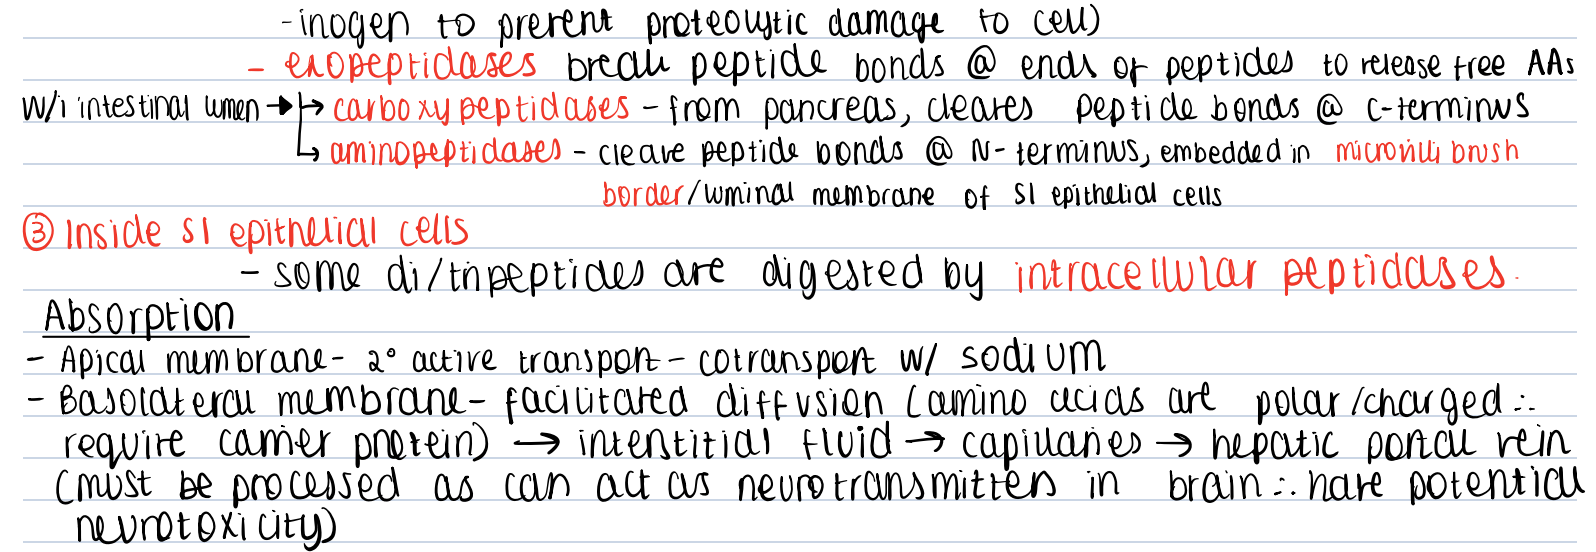 -inogen to prevent proteolytic damage to cell)
- exopeptidases break peptide bonds @ ends of peptides to release free AAs
w/i intestinal lumen → → carboxypeptidases - from pancreas, cleaves peptide bonds @ C-terminus
↳ aminopeptidases - cleave peptide bonds @ N-terminus, embedded in microvilli brush
border/luminal membrane of SI epithelial cells
③ Inside SI epithelial cells
- some di/tripeptides are digested by intracellular peptidases.
Absorption
- Apical membrane - 2° active transport - cotransport w/ sodium
- Basolateral membrane - facilitated diffusion (amino acids are polar/charged ∴
require carrier protein) → interstitial fluid → capillaries → hepatic portal vein
(must be processed as can act as neurotransmitters in brain ∴ have potential
neurotoxicity)